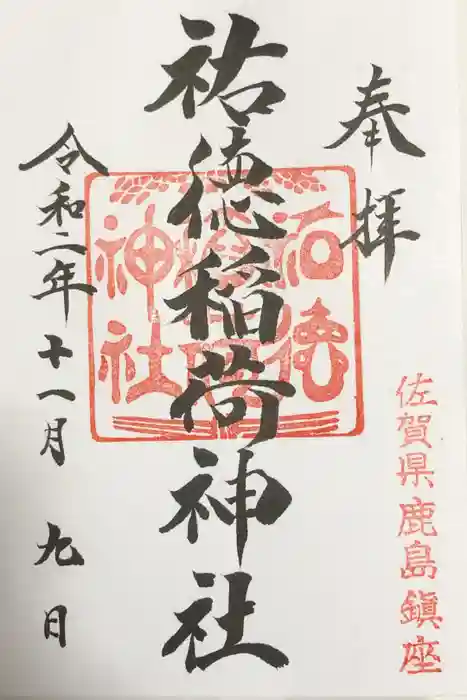 奉拝
佐賀県鹿島鎮座
祐徳稲荷神社
祐徳
稲荷
神社
令和二年十一月九日